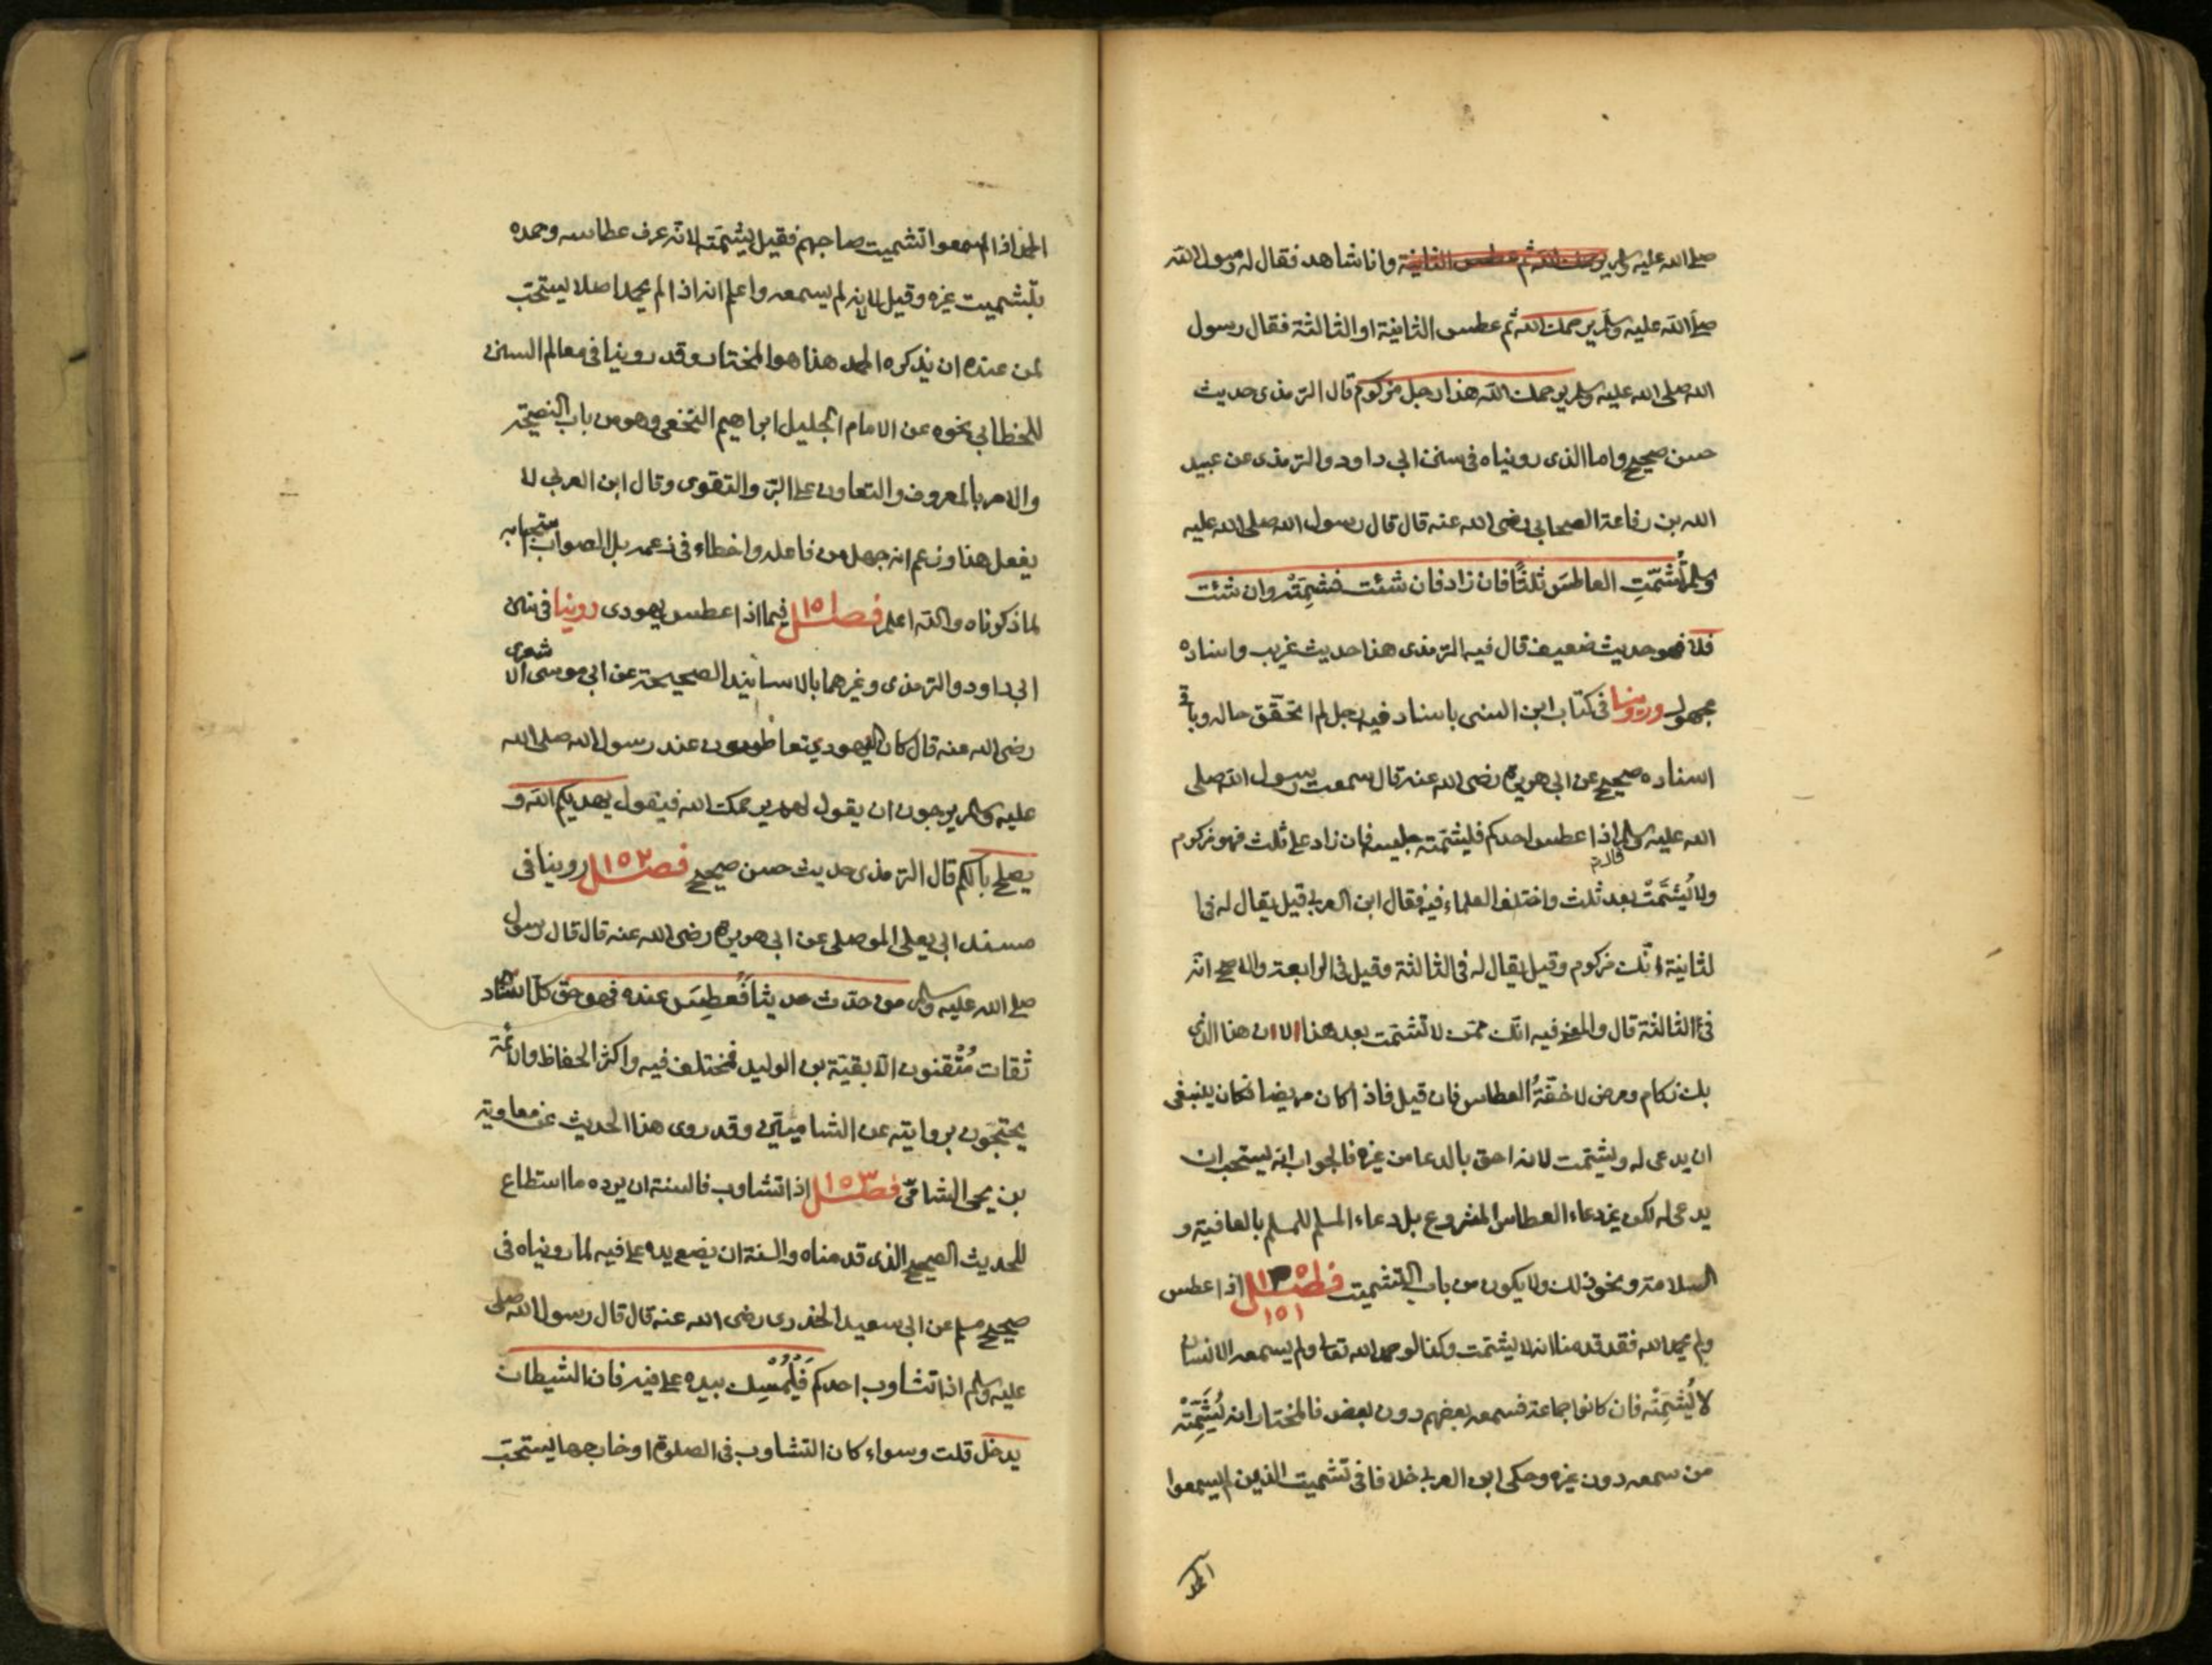 صلى الله عليه وسلم يرحمك الله ثم عطس الثانية وانا شاهد فقال له رسول الله
صلى الله عليه وسلم يرحمك الله ثم عطس الثانية او الثالثة فقال رسول
الله صلى الله عليه وسلم يرحمك الله هذا رجل مزكوم قال الترمذى حديث
حسن صحيح واما الذى رويناه فى سنن ابى داود والترمذى عن عبيد
الله بن رفاعة الصحابى رضى الله عنه قال قال رسول الله صلى الله عليه
وسلم تُشَمّتِ العاطسَ ثلثًا فان زاد فان شئت فشمِتْه وان شئت
فلا فهو حديث ضعيف قال فيه الترمذى هذا حديث غريب واسناده
مجهول وروينا فى كتاب ابن السنى باسناد فيه رجل لم اتحقق حاله وباقى
اسناده صحيح عن ابى هريرة رضى الله عنه قال سمعت رسول الله صلى
الله عليه وسلم اذا عطس احدكم فليشمّته جليسه فان زاد على ثلث فهو مزكوم
ولا يُشَمّتْ بعد ثلث واختلف العلماء فيه فقال ابن العربى قيل يقال له فى ا
لثانية انّك مزكوم وقيل يقال له فى الثالثة وقيل فى الرابعة والاصح انّه
فى الثالثة قال والمعنى فيه انّك ممّن لا تشمّت بعد هذا لان هذا الذى
بك زكام ومرض لا خفّةُ العطاس فان قيل فاذا كان مريضا فكان ينبغى
ان يدعى له ويشمّت لانه احق بالدعا من غيره فالجواب انّه يستحب ان
يدعى له لكن غير دعاء العطاس المشروع بل دعاء المسلم للمسلم بالعافية و
السلامة ونحو ذلك ولا يكون من باب التشميت فصل ١٥١ اذا عطس
ولم يحمد الله فقد قدمنا انه لا يشمّت وكذا لو حمد الله تعالى ولم يسمعه الانسان
لا يُشمِته فان كانوا جماعة فسمعه بعضهم دون بعض فالمختار انه يُشَمِّتْه
من سمعه دون غيره وحكى ابن العربى خلافا فى تشميت الذين لم يسمعوا
الحمد
الحمد اذا لم يسمعوا تشميت صاحبهم فقيل يشمّته لانّه عرف عطاسه وحمده
بتشميت غيره وقيل لا لانه لم يسمعه واعلم انه اذا لم يحمد اصلا يستحبّ
لمن عنده ان يذكره الحمد هذا هو المختار وقد روينا فى معالم السنن
للخطابى نحوه عن الامام الجليل ابراهيم النخعى وهو من باب النصيحة
والامر بالمعروف والتعاون على البرّ والتقوى وقال ابن العربى لا
يفعل هذا وزعم انه جهل من فاعله واخطاء فى زعمه بل الصواب استحبابه
لما ذكرناه والله اعلم فصل ١٥ فيما اذا عطس يهودى روينا فى سنن
ابى داود والترمذى وغيرهما بالاسانيد الصحيحة عن ابى موسى الاشعرى
رضى الله عنه قال كان اليهود يتعاطسون عند رسول الله صلى الله
عليه وسلم يرجون ان يقول لهم يرحمكم الله فيقول يهديكم الله و
يصلح بالكم قال الترمذى حديث حسن صحيح فصل ١٥٢ روينا فى
مسند ابى يعلى الموصلى عن ابى هريرة رضى الله عنه قال قال رسول
صلى الله عليه وسلم من حدّث حديثا فعطِسَ عنده فهو حق كلّ اسناده
ثقات مُتْقنون الّا بقيّة بن الوليد فمختلف فيه واكثر الحفاظ والائمّة
يحتجّون بروايته عن الشاميّين وقد روى هذا الحديث عن معاوية
بن يحيى الشامىّ فصل ١٥٣ اذا تثاوب فالسنة ان يرده ما استطاع
للحديث الصحيح الذى قدمناه والسنة ان يضع يده على فيه لما رويناه فى
صحيح مسلم عن ابى سعيد الخدرى رضى الله عنه قال قال رسول الله صلى
عليه وسلم اذا تثاوب احدكم فَلْيُمْسِك بيده على فيه فان الشيطان
يدخل قلت وسواء كان التثاوب فى الصلوة او خارجها يستحبّ